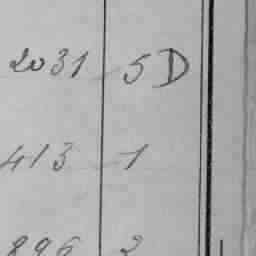 2031 5D
413 1
896 2